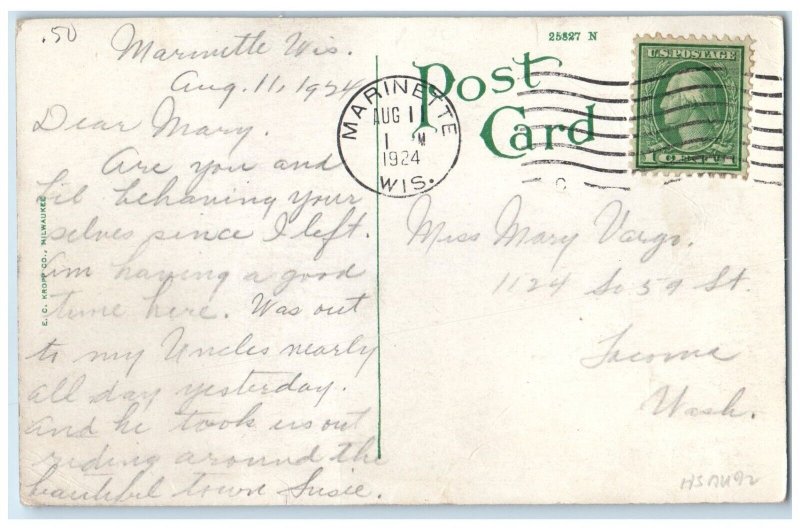 .50
Marinette Wis.
Aug. 11, 1924
Dear Mary.
Are you and
Lil behaving your
selves since I left.
Am having a good
time here. Was out
to my Uncles nearly
all day yesterday.
and he took us out
riding around the
beautiful town Susie.
E. C. KROPP CO., MILWAUKEE
25827 N
Post
Card
MARINETTE
AUG 11
1 M
1924
WIS.
U.S. POSTAGE
1 CENT 1
Miss Mary Vargo.
1124 So 59 St.
Tacoma
Wash.